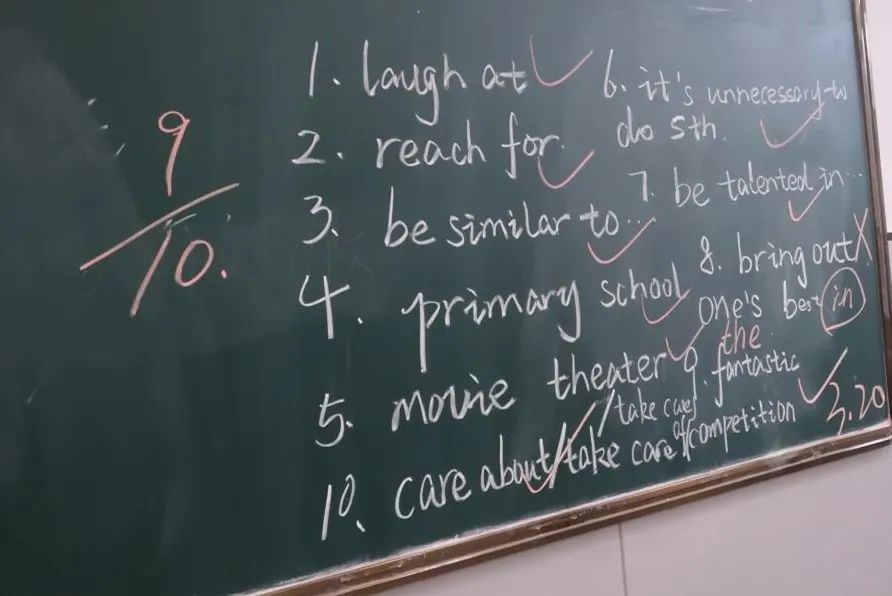 9
10.
1. laugh at
2. reach for.
3. be similar to...
4. primary school
5. movie theater
6. it's unnecessary to
do sth.
7. be talented in...
8. bring out
one's best in
the
9. fantastic
competition
10. care about/take care of
/take care
3.20